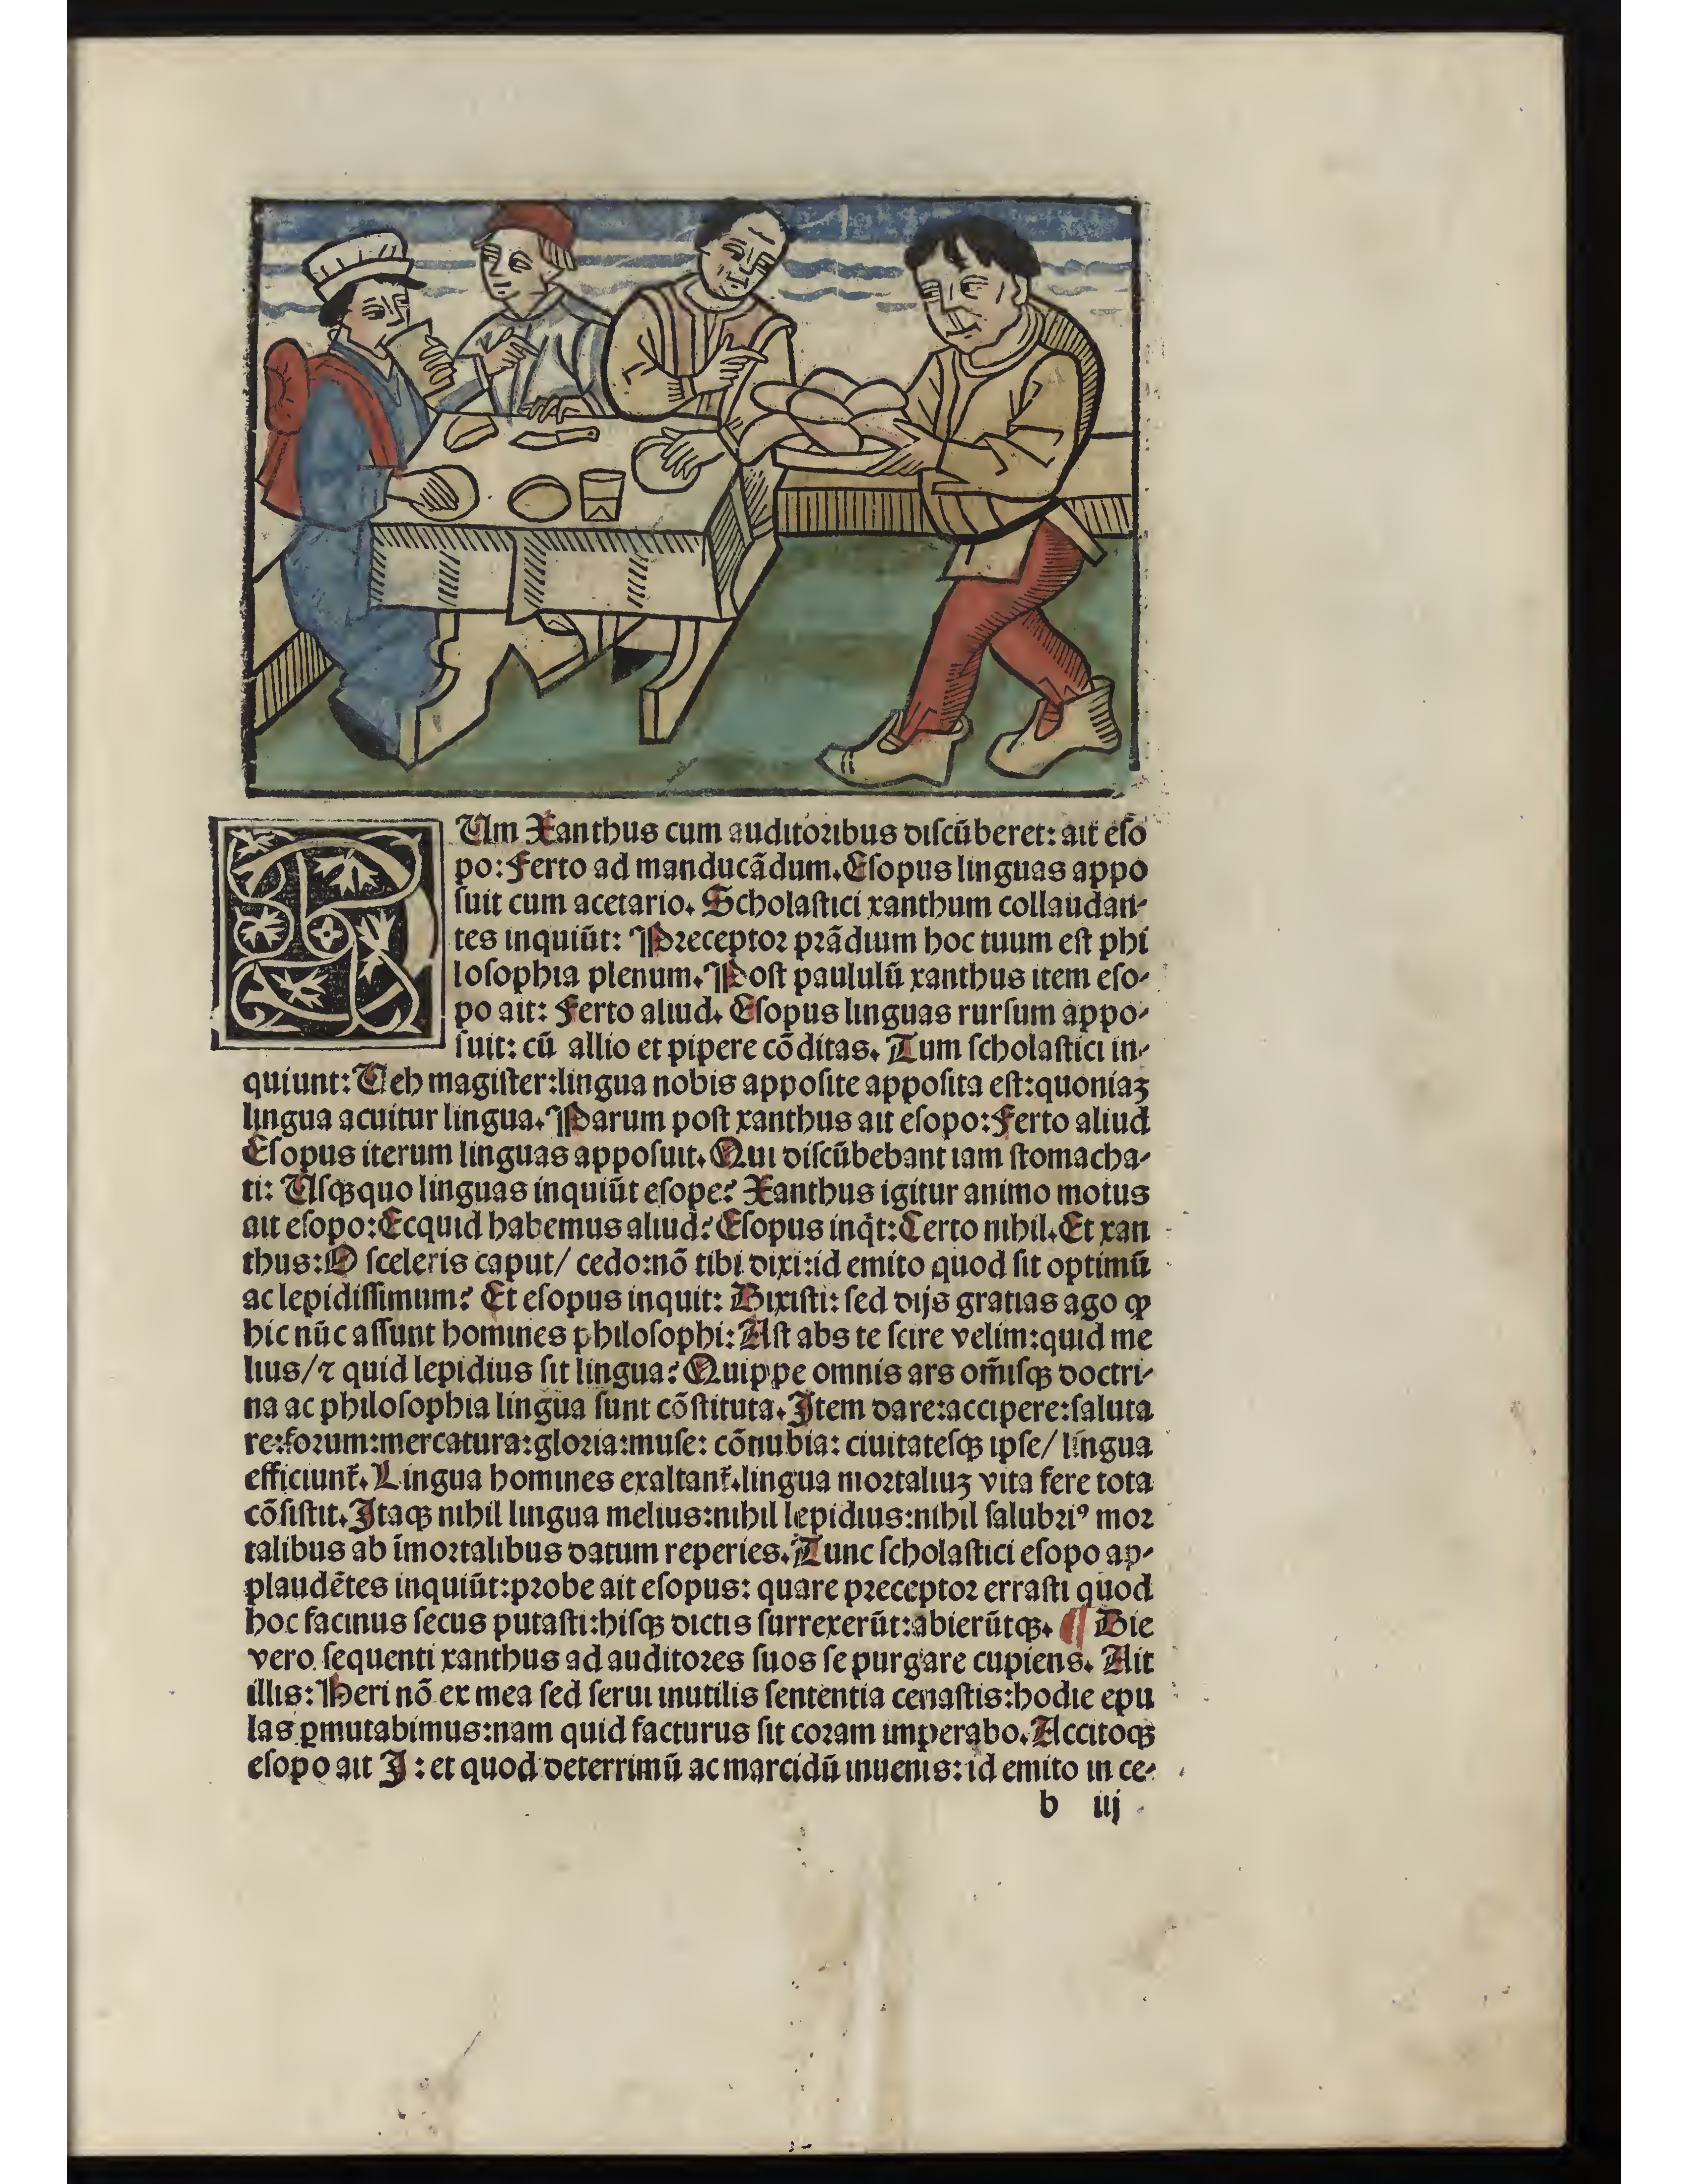 CUm Xanthus cum auditoribus diſcūberet: ait eſo
po: Ferto ad manducādum. Eſopus linguas appo
ſuit cum acetario. Scholaſtici xanthum collaudan-
tes inquiūt: Preceptor prādium hoc tuum eſt phi
loſophia plenum. Poſt paululū xanthus item eſo-
po ait: Ferto aliud. Eſopus linguas rurſum appo-
ſuit: cū allio et pipere cōditas. Tum ſcholaſtici in-
quiunt: Veh magiſter: lingua nobis appoſite appoſita eſt: quoniaʒ
lingua acuitur lingua. Parum poſt xanthus ait eſopo: Ferto aliud
Eſopus iterum linguas appoſuit. Qui diſcūbebant iam ſtomacha-
ti: Uſqꝫ quo linguas inquiūt eſope? Xanthus igitur animo motus
ait eſopo: Ecquid habemus aliud? Eſopus inq̄t: Certo nihil. Et xan
thus: O ſceleris caput/ cedo: nō tibi dixi: id emito quod ſit optimū
ac lepidiſſimum? Et eſopus inquit: Dixiſti: ſed dijs gratias ago ꝙ
hic nūc aſſunt homines philoſophi: Aſt abs te ſcire velim: quid me
lius/ ⁊ quid lepidius ſit lingua? Quippe omnis ars om̄iſqꝫ doctri-
na ac philoſophia lingua ſunt cōſtituta. Item dare: accipere: ſaluta
re: forum: mercatura: gloria: muſe: cōnubia: ciuitateſqꝫ ipſe/ lingua
efficiunt̄. Lingua homines exaltant̄. lingua mortaliuʒ vita fere tota
cōſiſtit. Itaqꝫ nihil lingua melius: nihil lepidius: nihil ſalubriꝰ mor
talibus ab īmortalibus datum reperies. Tunc ſcholaſtici eſopo ap-
plaudētes inquiūt: probe ait eſopus: quare preceptor erraſti quod
hoc facinus ſecus putaſti: hiſqꝫ dictis ſurrexerūt: abierūtqꝫ. ¶ Die
vero ſequenti xanthus ad auditores ſuos ſe purgare cupiens. Ait
illis: Heri nō ex mea ſed ſerui inutilis ſententia cenaſtis: hodie epu
las ꝑmutabimus: nam quid facturus ſit coram imperabo. Accitoqꝫ
eſopo ait I: et quod deterrimū ac marcidū inuenis: id emito in ce-
b iij